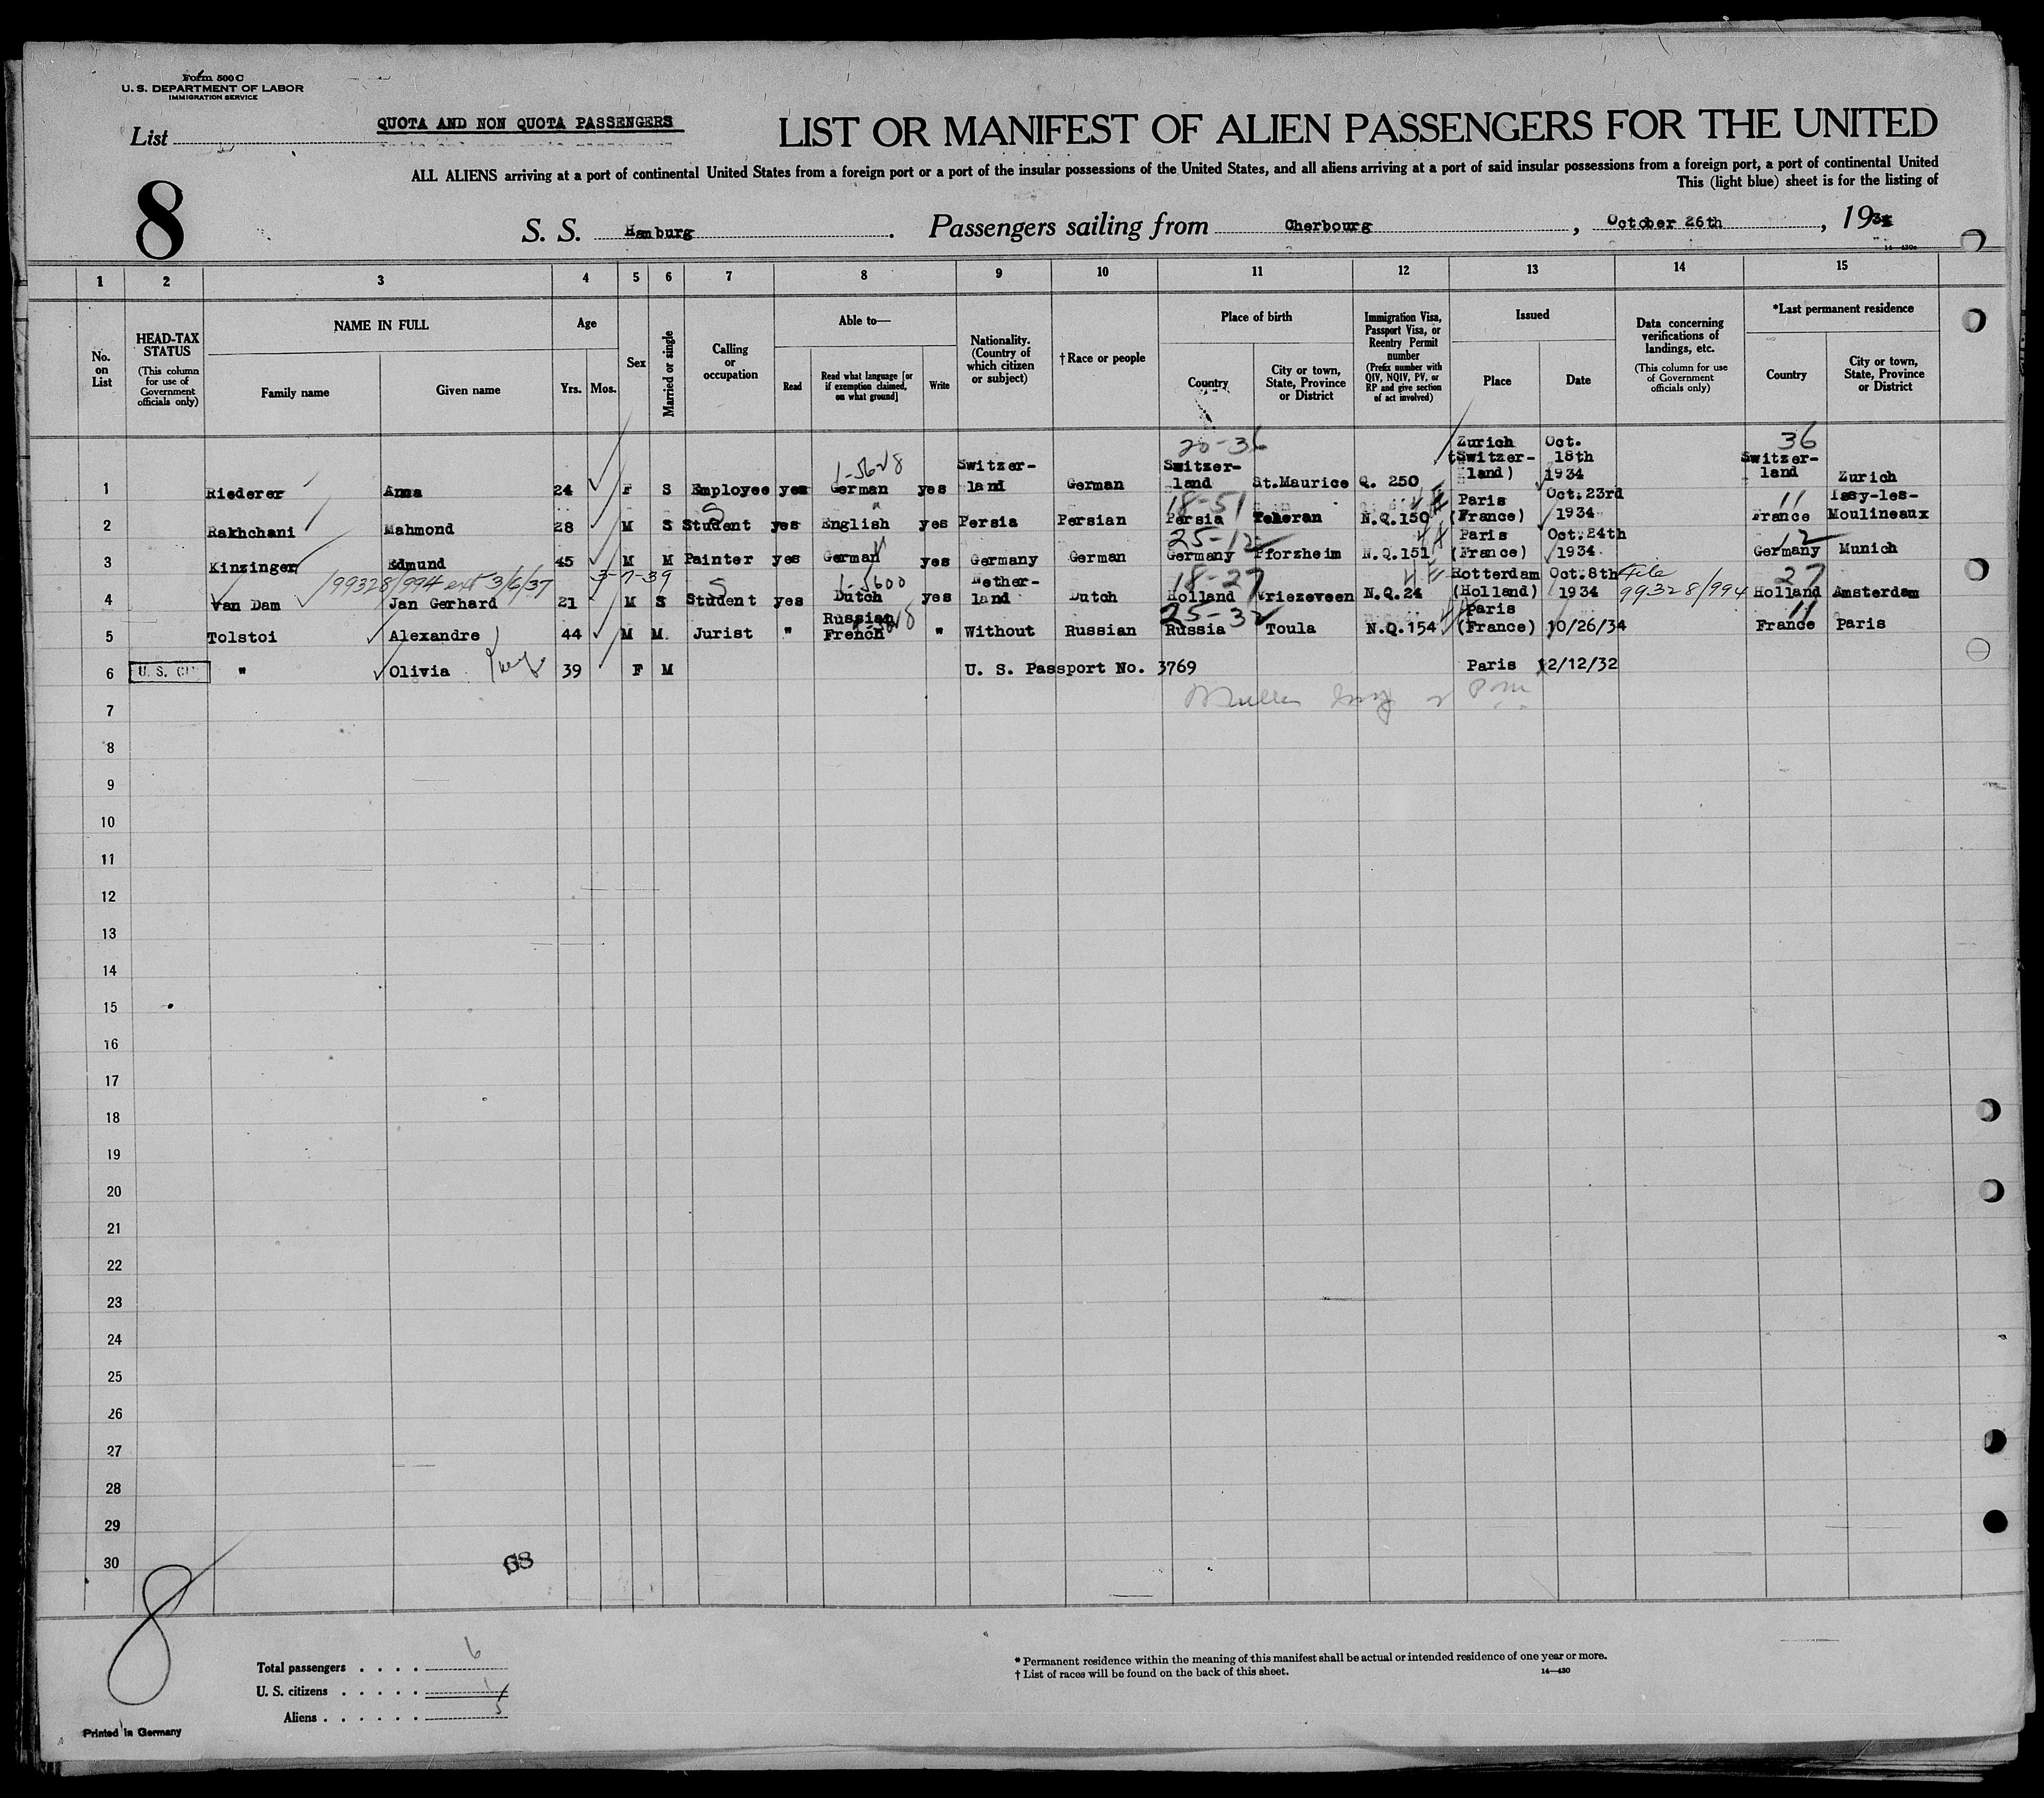 Form 500 C
U. S. DEPARTMENT OF LABOR
IMMIGRATION SERVICE
List
QUOTA AND NON QUOTA PASSENGERS
LIST OR MANIFEST OF ALIEN PASSENGERS FOR THE UNITED
ALL ALIENS arriving at a port of continental United States from a foreign port or a port of the insular possessions of the United States, and all aliens arriving at a port of said insular possessions from a foreign port, a port of continental United
This (light blue) sheet is for the listing of
8
S. S. Hamburg . Passengers sailing from Cherbourg , October 26th , 1934
1 2 3 4 5 6 7 8 9 10 11 12 13 14 15
No. on List
HEAD-TAX STATUS
(This column for use of Government officials only)
NAME IN FULL
Family name
Given name
Age
Yrs. Mos.
Sex
Married or single
Calling or occupation
Able to—
Read
Read what language [or if exemption claimed, on what ground]
Write
Nationality. (Country of which citizen or subject)
†Race or people
Place of birth
Country
City or town, State, Province or District
Immigration Visa, Passport Visa, or Reentry Permit number
(Prefix number with QIV, NQIV, PV, or RP and give section of act involved)
Issued
Place
Date
Data concerning verifications of landings, etc.
(This column for use of Government officials only)
*Last permanent residence
Country
City or town, State, Province or District
20-36 36
1-5628
1 Riederer Anna 24 F S Employee yes German yes Switzer-land German Switzer-land St.Maurice Q. 250 Zurich (Switzer-land) Oct. 18th 1934 Switzer-land Zurich
S 18-51 11
2 Rakhchani Mahmond 28 M S Student yes English yes Persia Persian Persia Teheran N.Q.150 Paris (France) Oct.23rd 1934 France Issy-les-Moulineaux
25-12 12
3 Kinzinger Edmund 45 M M Painter yes German yes Germany German Germany Pforzheim N.Q.151 Paris (France) Oct.24th 1934 Germany Munich
99328/994 ext 3/6/37 3-7-39 S 1-5600 18-27 File 99328/994 27
4 Van Dam Jan Gerhard 21 M S Student yes Dutch yes Nether-land Dutch Holland Vriezeveen N.Q.24 Rotterdam (Holland) Oct.8th 1934 Holland Amsterdam
25-32 11
5 Tolstoi Alexandre 44 M M. Jurist " Russian French " Without Russian Russia Toula N.Q.154 Paris (France) 10/26/34 France Paris
6 U. S. " Olivia 39 F M U. S. Passport No. 3769 Paris 12/12/32
7
8
9
10
11
12
13
14
15
16
17
18
19
20
21
22
23
24
25
26
27
28
29
30
68
8
Total passengers . . . . 6
U. S. citizens . . . . . 1
Aliens . . . . . . 5
* Permanent residence within the meaning of this manifest shall be actual or intended residence of one year or more.
† List of races will be found on the back of this sheet.
14—430
Printed in Germany